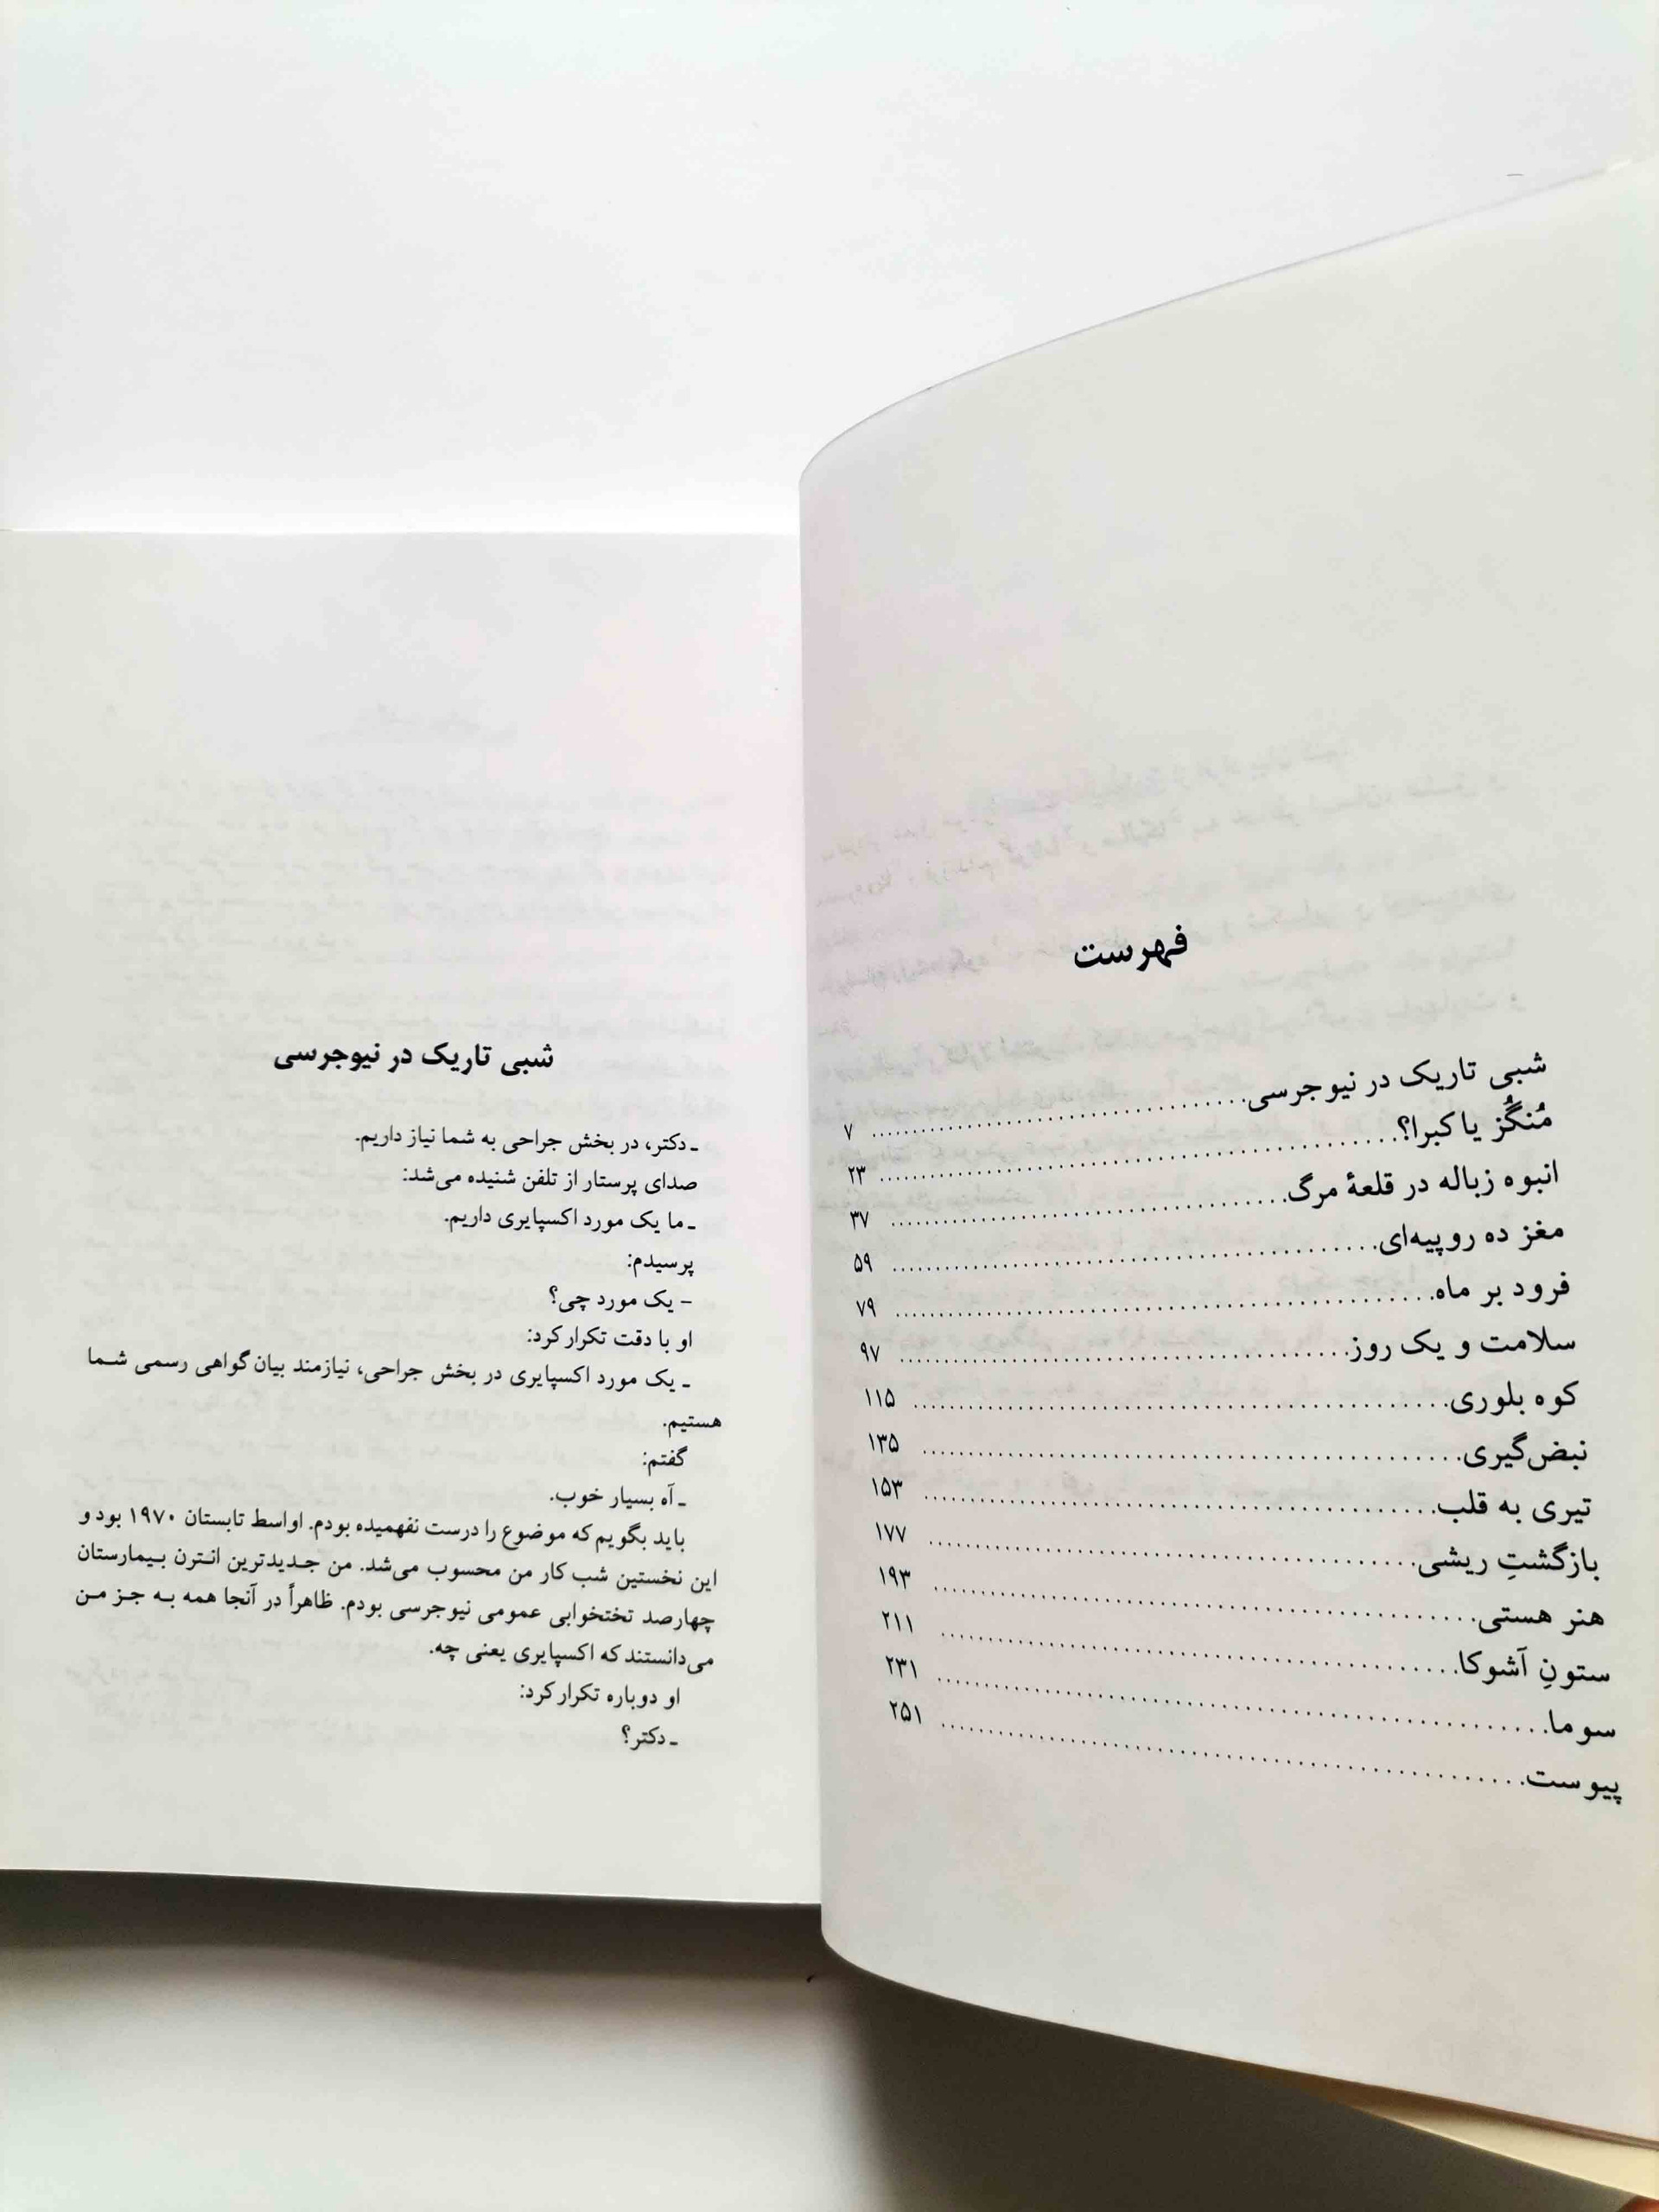 فهرست
شبی تاریک در نیوجرسی ۷
مُنگُز یا کبرا؟ ۲۳
انبوه زباله در قلعهٔ مرگ ۳۷
مغز ده روپیه‌ای ۵۹
فرود بر ماه ۷۹
سلامت و یک روز ۹۷
کوه بلوری ۱۱۵
نبض‌گیری ۱۳۵
تیری به قلب ۱۵۳
بازگشتِ ریشی ۱۷۷
هنر هستی ۱۹۳
ستونِ آشوکا ۲۱۱
سوما ۲۳۱
پیوست ۲۵۱
شبی تاریک در نیوجرسی
ـ دکتر، در بخش جراحی به شما نیاز داریم.
صدای پرستار از تلفن شنیده می‌شد:
ـ ما یک مورد اکسپایری داریم.
پرسیدم:
– یک مورد چی؟
او با دقت تکرار کرد:
ـ یک مورد اکسپایری در بخش جراحی، نیازمند بیان گواهی رسمی شما
هستیم.
گفتم:
ـ آه بسیار خوب.
باید بگویم که موضوع را درست نفهمیده بودم. اواسط تابستان ۱۹۷۰ بود و
این نخستین شب کار من محسوب می‌شد. من جدیدترین انترن بیمارستان
چهارصد تختخوابی عمومی نیوجرسی بودم. ظاهراً در آنجا همه به جز من
می‌دانستند که اکسپایری یعنی چه.
او دوباره تکرار کرد:
ـ دکتر؟